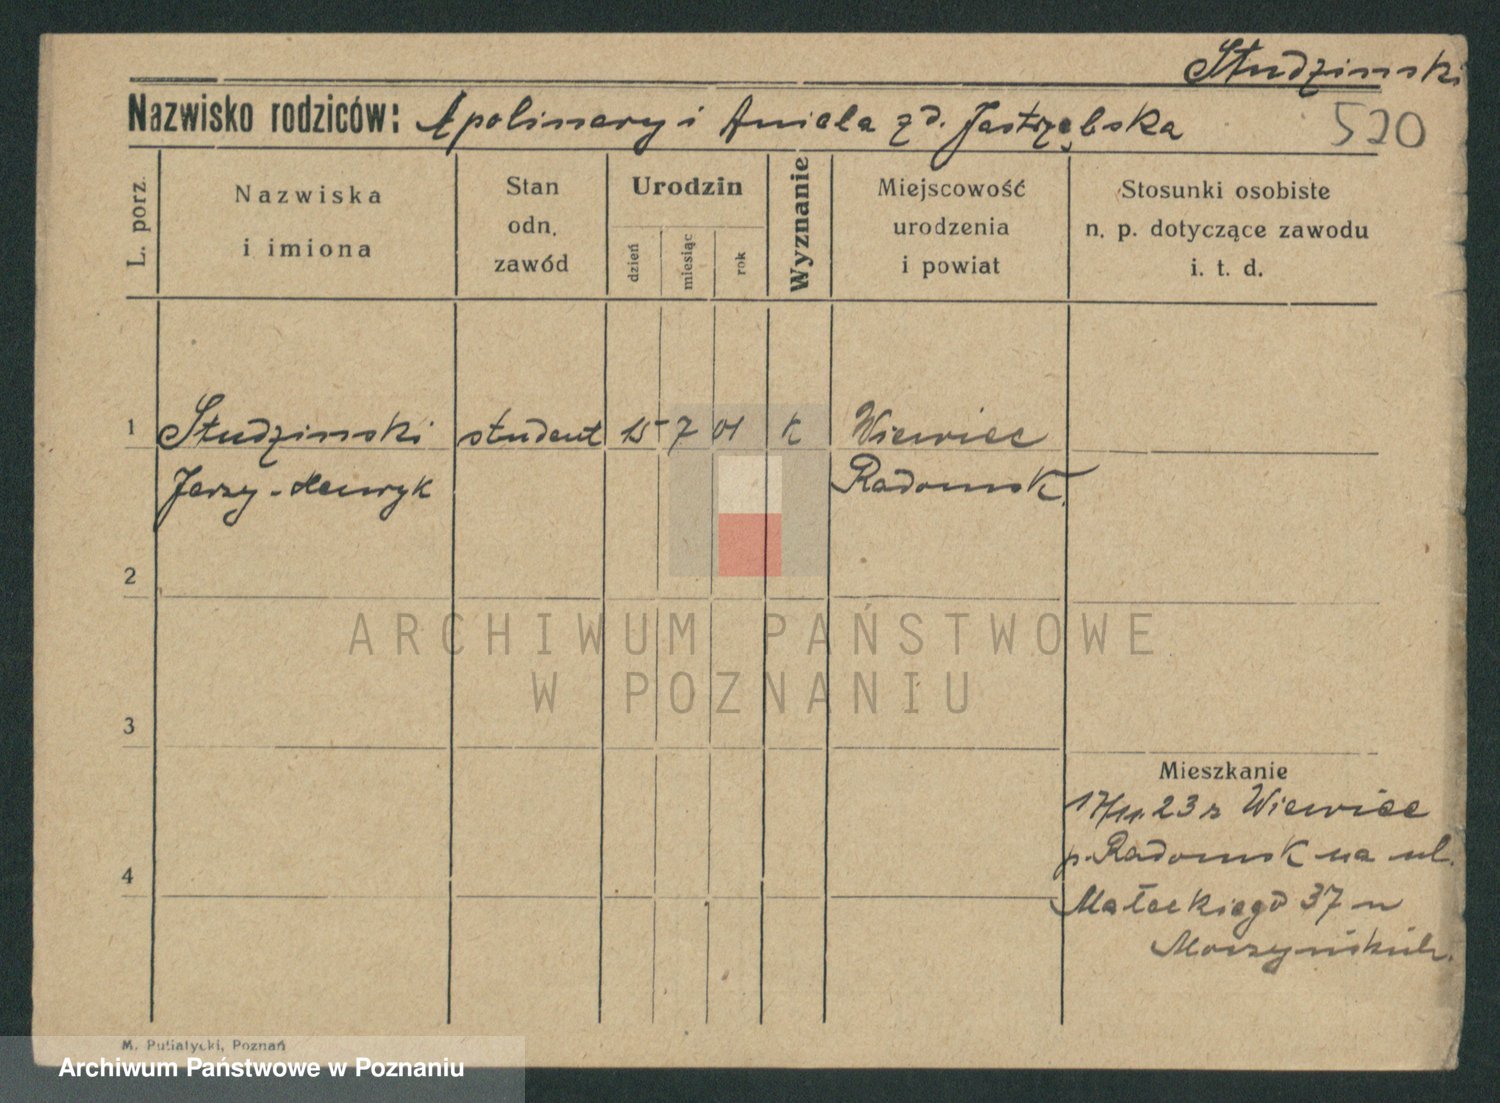 Studzinski
Nazwisko rodziców: Apolinary i Aniela zd. Jastrzębska
520
L. porz.
Nazwiska
i imiona
Stan
odn.
zawód
Urodzin
dzień
miesiąc
rok
Wyznanie
Miejscowość
urodzenia
i powiat
Stosunki osobiste
n. p. dotyczące zawodu
i. t. d.
1 Studzinski student 15 7 01 k Wiewiec
Jerzy-Henryk Radomsk.
2
ARCHIWUM PAŃSTWOWE
W POZNANIU
3
Mieszkanie
17/11.23 z Wiewiec
p. Radomsk na ul.
4
Małeckiego 37 u
M. Putiatycki, Poznań
Archiwum Państwowe w Poznaniu